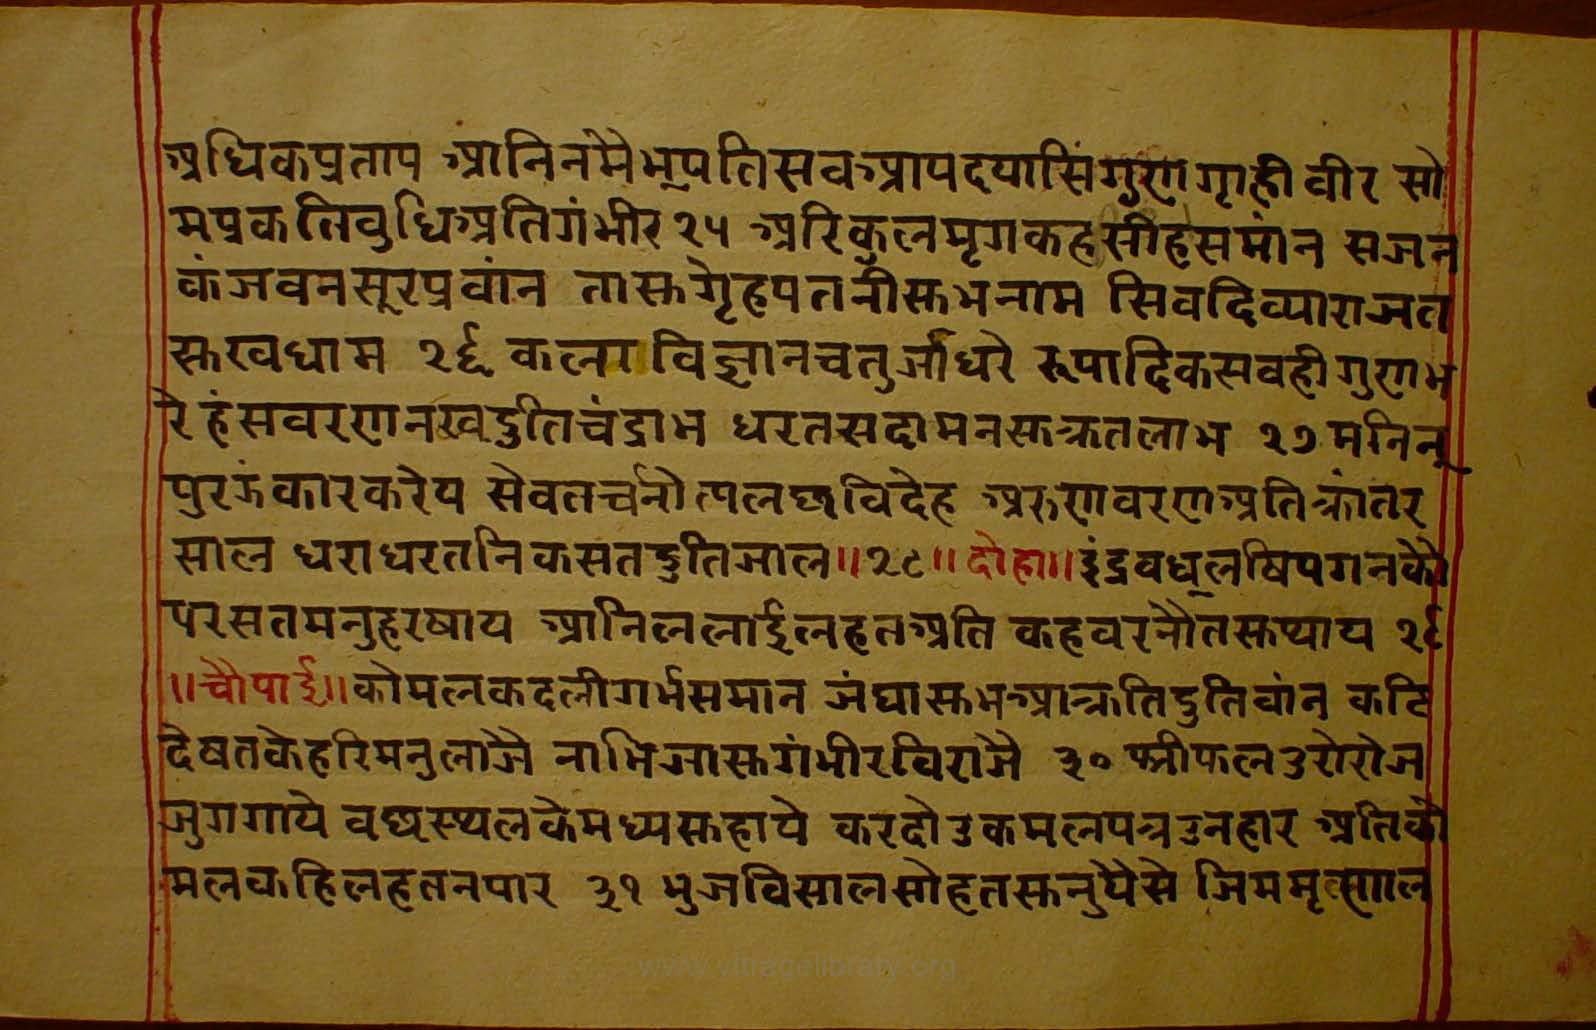 अधिकप्रताप आनिनमैभूपतिसवआपदयासिंगुणगृाहीवीर सो
मप्रकतिवुधिअतिगंभीर २५ अरिकुलमृगकहसीहसमांन सजन
कंजवनसूरप्रवांन तासुगृेहपतनीसुभनाम सिवदिव्याराजत
सुखधाम २६ कला विज्ञानचतुर्जाधरे रूपादिकसवहीगुणभ
रे हंसवरणनखदुतिचंद्राभ धरतसदामनसुक्रतलाभ २७ मनिनू
पुरऊंकारकरेय सेवतर्चनोत्पलछविदेह अरुणवरणअतिक्रांतर
साल धराधरतनिकसतदुतिजाल॥२८॥दोहा॥इंद्रवधूलषिपगनकौ
परसतमनुहरषाय आनिललाईलहतअति कहवरनौतसुप्याय २९
॥चौपाई॥कोमलकदलीगर्भसमान जंघासुभआक्रतिदुतिवांन कटि
देषतकेहरिमनुलाजै नाभिजासुगंभीरविराजै ३० श्रीफलउरोरोज
जुगगाये वछस्थलकेमध्यसुहाये करदोउकमलपत्रउनहार अतिको
मलकहिलहतनपार ३१ भुजविसालसोहतसुनुयैसे जिममृत्णाल
www.vitragelibrary.org